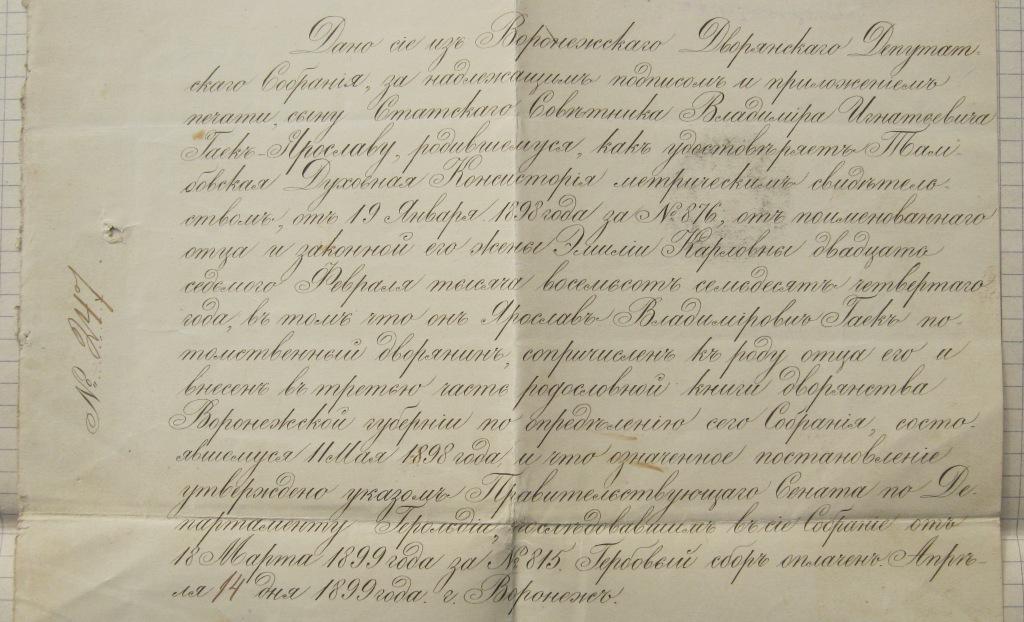 Дано сіе изъ Воронежскаго Дворянскаго Депутат-
скаго Собранія, за надлежащимъ подписомъ и приложеніемъ
печати, сыну Статскаго Совѣтника Владиміра Игнатьевича
Гаекъ-Ярославу, родившемуся, какъ удостовѣряетъ Там-
бовская Духовная Консисторія метрическимъ свидѣтель-
ствомъ, отъ 19 Января 1898 года за № 876, отъ поименованнаго
отца и законной его жены Эмиліи Карловны двадцать
седьмого Февраля тысяча восемьсотъ семьдесятъ четвертаго
года, въ томъ что онъ Ярославъ Владиміровичъ Гаекъ по-
томственный дворянинъ, сопричисленъ къ роду отца его и
внесенъ въ третью часть родословной книги дворянства
Воронежской губерніи по опредѣленію сего Собранія, состо-
явшемуся 11 Мая 1898 года, и что означенное постановленіе
утверждено указомъ Правительствующаго Сената по Де-
партаменту Герольдіи, послѣдовавшимъ въ сіе Собраніе отъ
18 Марта 1899 года за № 815. Гербовый сборъ оплаченъ. Апрѣ-
ля 14 дня 1899 года. г. Воронежъ.
№ 247